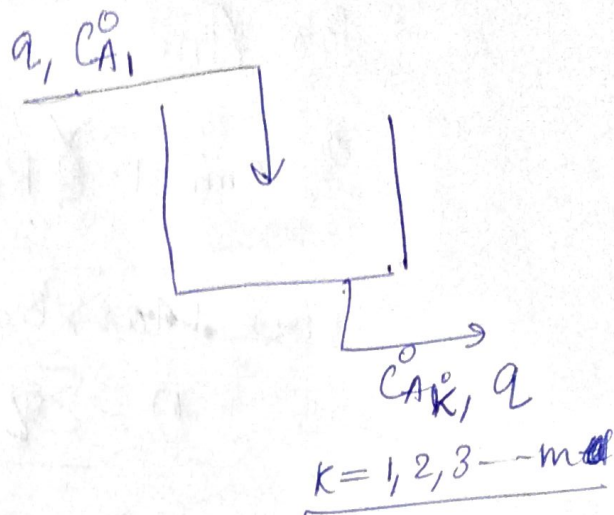 q, C°A₁
C°Aₖ, q
K = 1, 2, 3 - - - m